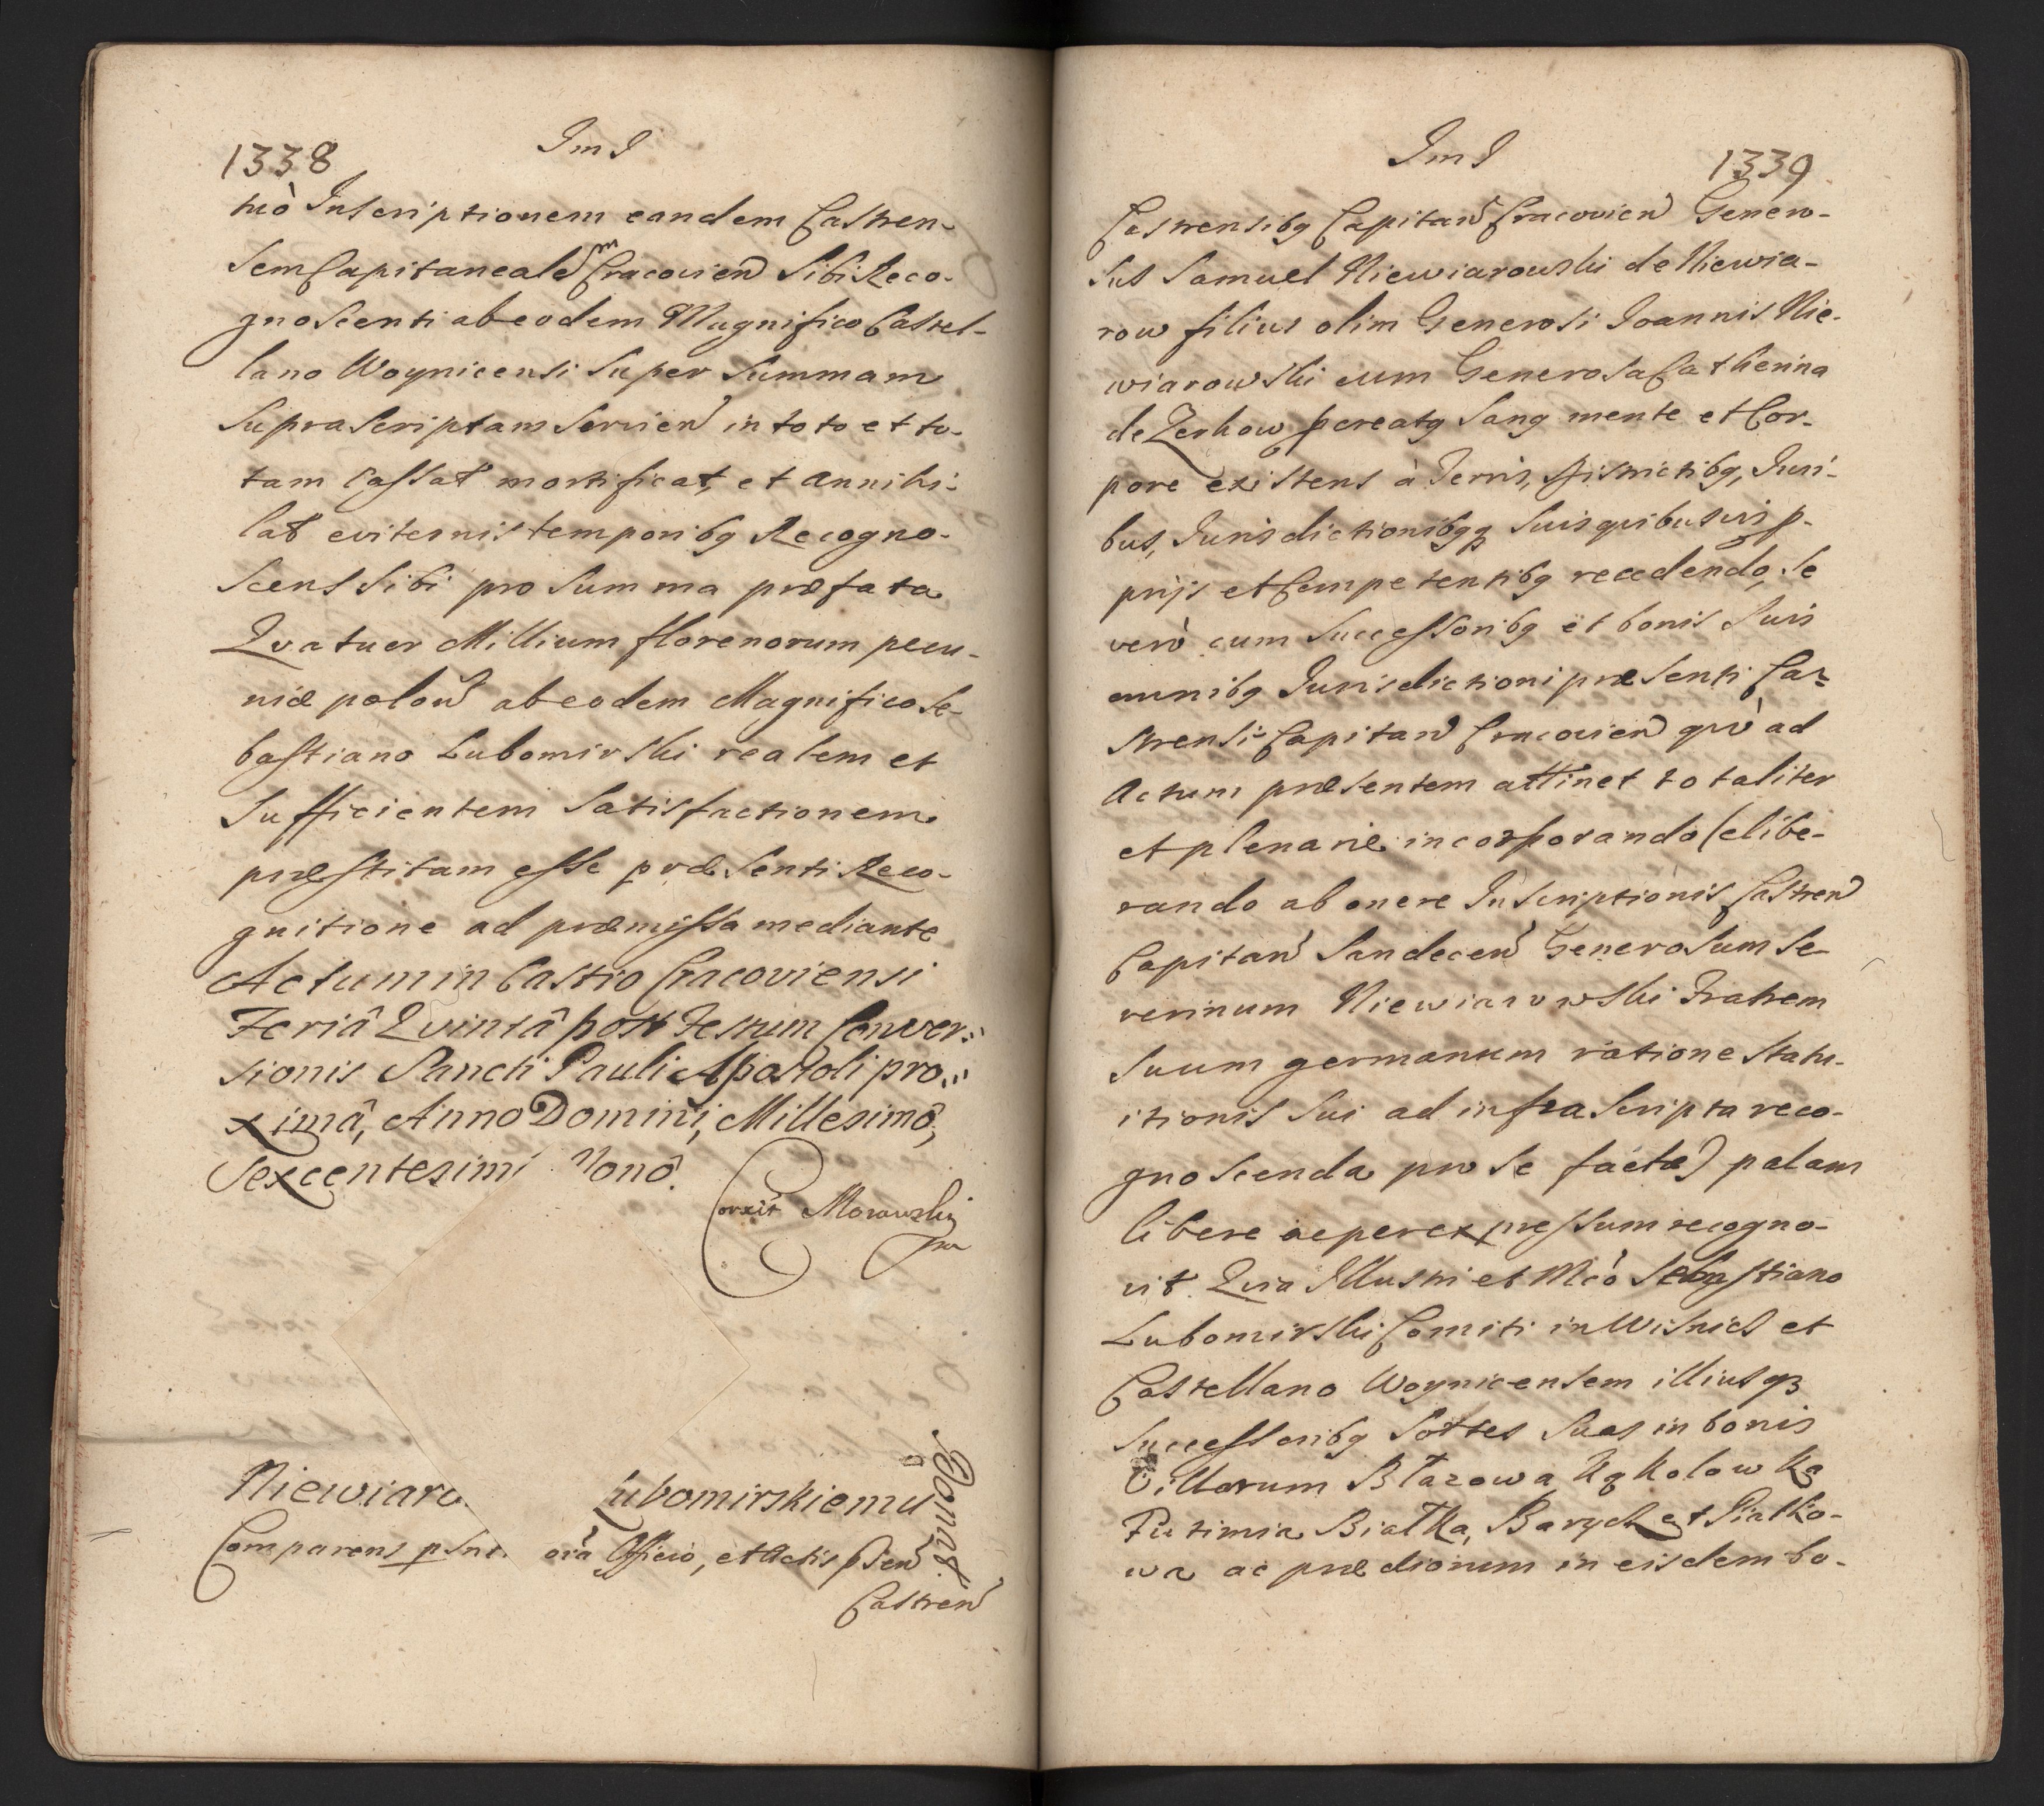 1338
ImI
tuò Inscriptionem eandem Castren-
sem Capitanealem Cracovien Sibi Reco-
gnoscenti ab eodem Magnifico Castel-
lano Woynicensi Super Summam
Supra Scriptam Servien in toto et to-
tam Cassat mortificat, et Annihi-
lat eviternis temporibq Recogno-
scens Sibi pro Summa præfata
Quatuor Millium florenorum pecu-
niæ polon ab eodem Magnifico Se-
bastiano Lubomirski realem et
Sufficientem Satisfactionem
præstitam esse præsenti Reco-
gnitione ad præmissa mediante
Actum in Castro Cracoviensi
Feriâ Quintâ post Festum Conver-
sionis Sancti Pauli Apostoli pro-
ximâ, Anno Domini, Millesimô,
Sexcentesimi Nonô.
Corxit Morawski
Niewiaro Lubomirskiemu
Bona
Comparens psne orã Officio, et Actis psen
Castren
ImI
1339
Castrensibq Capitan Cracovien Genero-
sus Samuel Niewiarowski de Niewia-
row filius olim Generosi Joannis Nie-
wiarowski cum Generosa Catherina
de Zerkow pcreatq Sanq mente et Cor-
pore existens à Terris, Districtibq, Juri-
bus, Jurisdictionibqq Suis quibusvis p-
prijs et Competentibq recedendo, Se
verò cum Successoribq et bonis Suis
omnibq Jurisdictioni præsenti Ca-
strensi Capitan Cracovien quò ad
Actum præsentem attinet totaliter
et plenariè incorporando (elibe-
rando ab onere Inscriptionis Castren
Capitan Sandecen Generosum Se-
verinum Niewiarowski Fratrem
Suum germanum ratione Statu-
itionis Sui ad infra Scripta reco-
gnoscenda pro Se factæ) palam
libere ac per expressum recogno-
vit. Quia Illustri et Mcò Sebastiano
Lubomirski Comiti in Wisnicz et
Castellano Woynicensem illiusqz
Successoribq Sortes Suas in bonis
Villarum Błazowa Kąkolowka
Futimia Białka, Barych et Piatko-
wa ac prædiorum in eisdem bo-